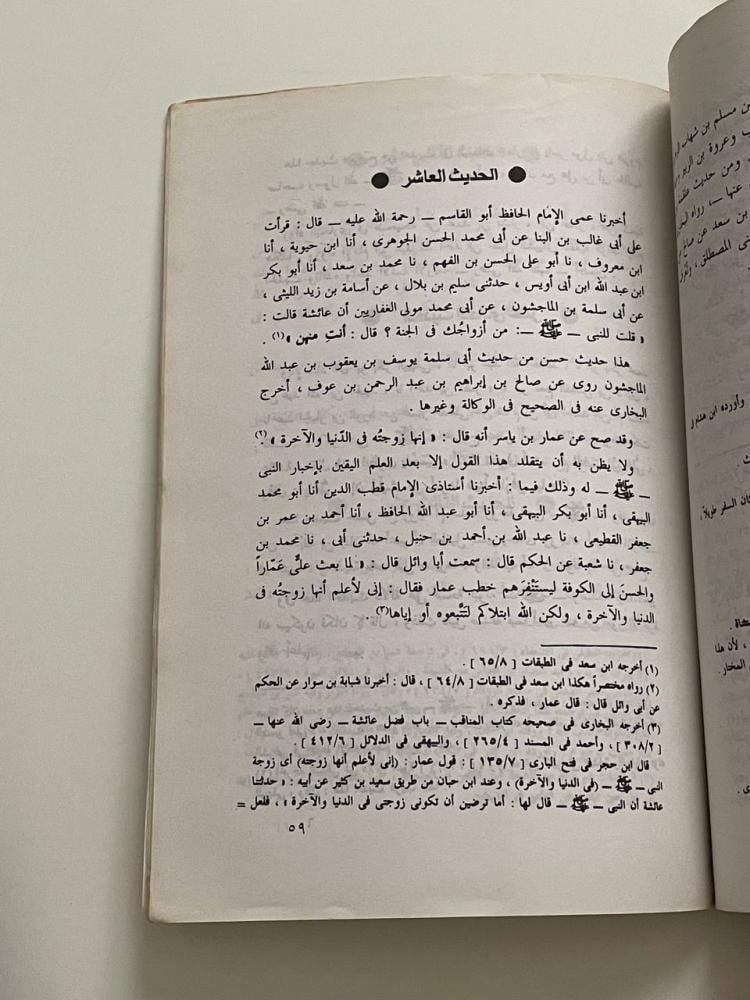 ● الحديث العاشر ●
أخبرنا عمى الإمام الحافظ أبو القاسم ــ رحمة الله عليه ــ قال : قرأت
على أبى غالب بن البنا عن أبى محمد الحسن الجوهرى ، أنا ابن حيوية ، أنا
ابن معروف ، نا أبو على الحسن بن الفهم ، نا محمد بن سعد ، أنا أبو بكر
ابن عبد الله ابن أبى أويس ، حدثنى سليم بن بلال ، عن أسامة بن زيد الليثى ،
عن أبى سلمة بن الماجشون ، عن أبى محمد مولى الغفاريين أن عائشة قالت :
« قلت للنبى ــ ﷺ ــ : من أزواجُك فى الجنة ؟ قال : أنتِ منهن »(١) .
هذا حديث حسن من حديث أبى سلمة يوسف بن يعقوب بن عبد الله
الماجشون روى عن صالح بن إبراهيم بن عبد الرحمن بن عوف ، أخرج
البخارى عنه فى الصحيح فى الوكالة وغيرها .
وقد صح عن عمار بن ياسر أنه قال : « إنها زوجتُه فى الدّنيا والآخرة »(٢) .
ولا يظن به أن يتقلد هذا القول إلا بعد العلم اليقين بإخبار النبى
ــ ﷺ ــ له وذلك فيما : أخبرنا أستاذى الإمام قطب الدين أنا أبو محمد
البيهقى ، أنا أبو بكر البيهقى ، أنا أبو عبد الله الحافظ ، أنا أحمد بن عمر بن
جعفر القطيعى ، نا عبد الله بن أحمد بن حنبل ، حدثنى أبى ، نا محمد بن
جعفر ، نا شعبة عن الحكم قال : سمعت أبا وائل قال : « لما بعث علىٌّ عَمّاراً
والحسنَ إلى الكوفة ليستَنْفِرَهم خطب عمار فقال : إنى لأعلم أنها زوجتُه فى
الدنيا والآخرة ، ولكن الله ابتلاكم لتَتَّبعوه أو إياها(٣) .
(١) أخرجه ابن سعد فى الطبقات [ ٦٥/٨ ] .
(٢) رواه مختصراً هكذا ابن سعد فى الطبقات [ ٦٤/٨ ] ، قال : أخبرنا شبابة بن سوار عن الحكم
عن أبى وائل قال : قال عمار ، فذكره .
(٣) أخرجه البخارى فى صحيحه كتاب المناقب ــ باب فضل عائشة ــ رضى الله عنها ــ
[ ٣٠٨/٢ ] ، وأحمد فى المسند [ ٢٦٥/٤ ] ، والبيهقى فى الدلائل [ ٤١٢/٦ ] .
قال ابن حجر فى فتح البارى [ ١٣٥/٧ ] : قول عمار : (إنى لأعلم أنها زوجته) أى زوجة
النبى ــ ﷺ ــ (فى الدنيا والآخرة) ، وعند ابن حبان من طريق سعيد بن كثير عن أبيه : « حدثتنا
عائشة أن النبى ــ ﷺ ــ قال لها : أما ترضين أن تكونى زوجى فى الدنيا والآخرة » ، فلعل =
٥٩
بن مسلم بن شهاب
وعروة بن الزبير
ومن حديث
عنها ــ ، رواه
بن سعد عن صالح
المصطلق ،
وأورده ابن هشام
كان السفر طويلاً ،
، لأن هذا